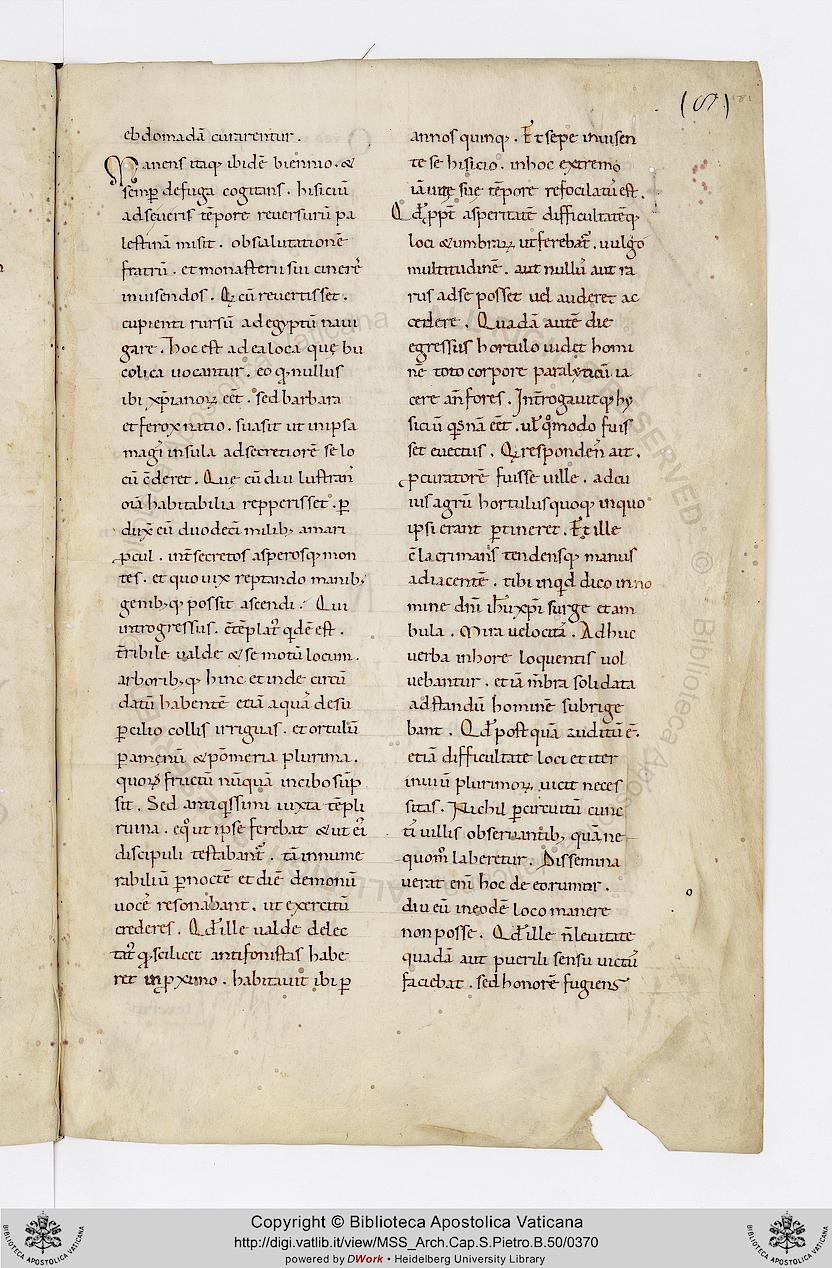 (S)
181
ebdomadā curarentur.
Manens itaq; ibidē biennio. &
semp̄ defuga cogitans. hisiciū
adseueris tēpore reuersurū pa
lestinā misit. obsalutationē
fratrū. et monasterii sui cinerē
inuisendos. Q cū reuertisset.
cupienti rursū ad egyptū naui
gare. hoc est ad ea loca quę bu
colica uocantur. eo q nullus
ibi xp̄ianoꝝ eēt. sed barbara
et ferox natio. suasit ut in ipsa
magi insula adsecretiorē se lo
cū c̄ederet. Quę cū diu lustrans
oīa habitabilia repperisset. ꝑ
duxit eū duodeci milib; amari
ꝓcul. int̄ secretos asperosq; mon
tes. et quo uix reptando manib;
genib;q; possit ascendi. Qui
introgressus. c̄tēplat' qdē est.
t̄ribile ualde & se motū locum.
arborib;q; hinc et inde circū
datū habentē etiā aquā desu
ꝑcilio collis irriguis. et ortulū
ꝑamenū & pōmeria plurima.
quoꝝ fructū nūquā in cibo sūp
sit. Sed antiqissimi iuxta tēpli
ruina. eq ut ipse ferebat & ut ei
discipuli testabant'. tā innume
rabiliū ꝑ noctē et diē demonū
uocē resonabant. ut exercitū
crederes. Qđ ille ualde delec
tat' q scilicet antifonistas habe
ret in ꝓximo. habitauit ibi ꝑ
annos quinq;. Et sepe inuisen
te se hisicio. in hoc extremo
iā uitę suę tēpore refocilatus est.
Qđ ppt' asperitatē difficultatēq;
loci & umbraꝝ ut ferebat'. uulgo
multitudinē. aut nullus aut ra
rus adse posset uel auderet ac
cedere. Quadā autē die
egressus hortulo uidet homi
nē toto corpore paralyticū ia
cere an̄ fores. Int̄rogauitq; hy
siciū qsnā eēt. uł qomodo fuis
set euectus. Q respondens ait.
ꝓcuratorē fuisse uille. ad cu
ius agrū hortulus quoq; in quo
ipsi erant ꝑtineret. Et ille
c̄lacrimans tendensq; manus
ad iacentē. tibi inqd dico in no
mine dn̄i ih̄u xp̄i surge et am
bula. Mira uelocitas. Adhuc
uerba in hore loquentis uol
uebantur. et iā mb̄ra solidata
ad standū hominē subrige
bant. Qđ post quā auditū ē.
etiā difficultate loci et iter
inuiū plurimoꝝ uicit neces
sitas. Nichil ꝑ circuitū cunc
tis uillis obseruantib; quā ne
quom̄ laberetur. Dissemina
uerat eni hoc de eo rumor.
diu eū in eodē loco manere
non posse. Qđ ille n̄ leuitate
quadā aut puerili sensu uictus
faciebat. sed honorē fugiens
Copyright © Biblioteca Apostolica Vaticana
http://digi.vatlib.it/view/MSS_Arch.Cap.S.Pietro.B.50/0370
powered by DWork • Heidelberg University Library